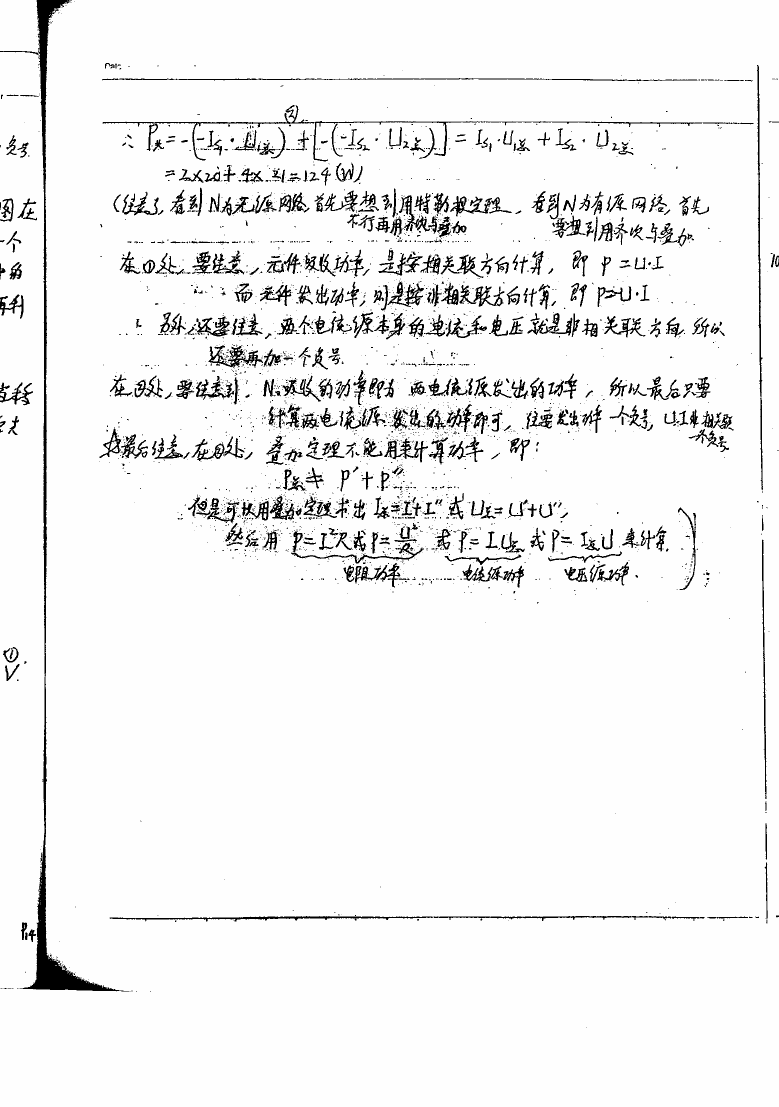 Date.
②
∴ P吸=-(-Is₁·U₁总)+[-(-Is₂·U₂总)]=Is₁·U₁总+Is₂·U₂总
=2×20+4×21=124(W)
(注意,看到N为无源网络首先要想到用特勒根定理,看到N为有源网络,首先
不行再用齐次与叠加 要想到用齐次与叠加
在①处,要注意,元件吸收功率,是按相关联方向计算,即 P=U·I
而元件发出功率,则是按非相关联方向计算,即 P=U·I
另外,还要注意,两个电流源本身的电流和电压就是非相关联方向,所以
还要再加一个负号.
在②处,要注意到,N吸收的功率即为两电流源发出的功率,所以最后只要
计算两电流源发出的功率即可,注要发出功率一个负号,U、I非相关联
一个负号
☆最后注意,在②处,叠加定理不能用来计算功率,即:
P总≠P′+P″
但是可以用叠加定理求出 I总=I′+I″ 或 U总=U′+U″,
然后用 P=I²R或P=U²/R,或P=I·U总 或P=I总U 来计算.)
电阻功率 电流源功率 电压源功率.
负号
图在
一个
中的
再利
①
V.
P14
10